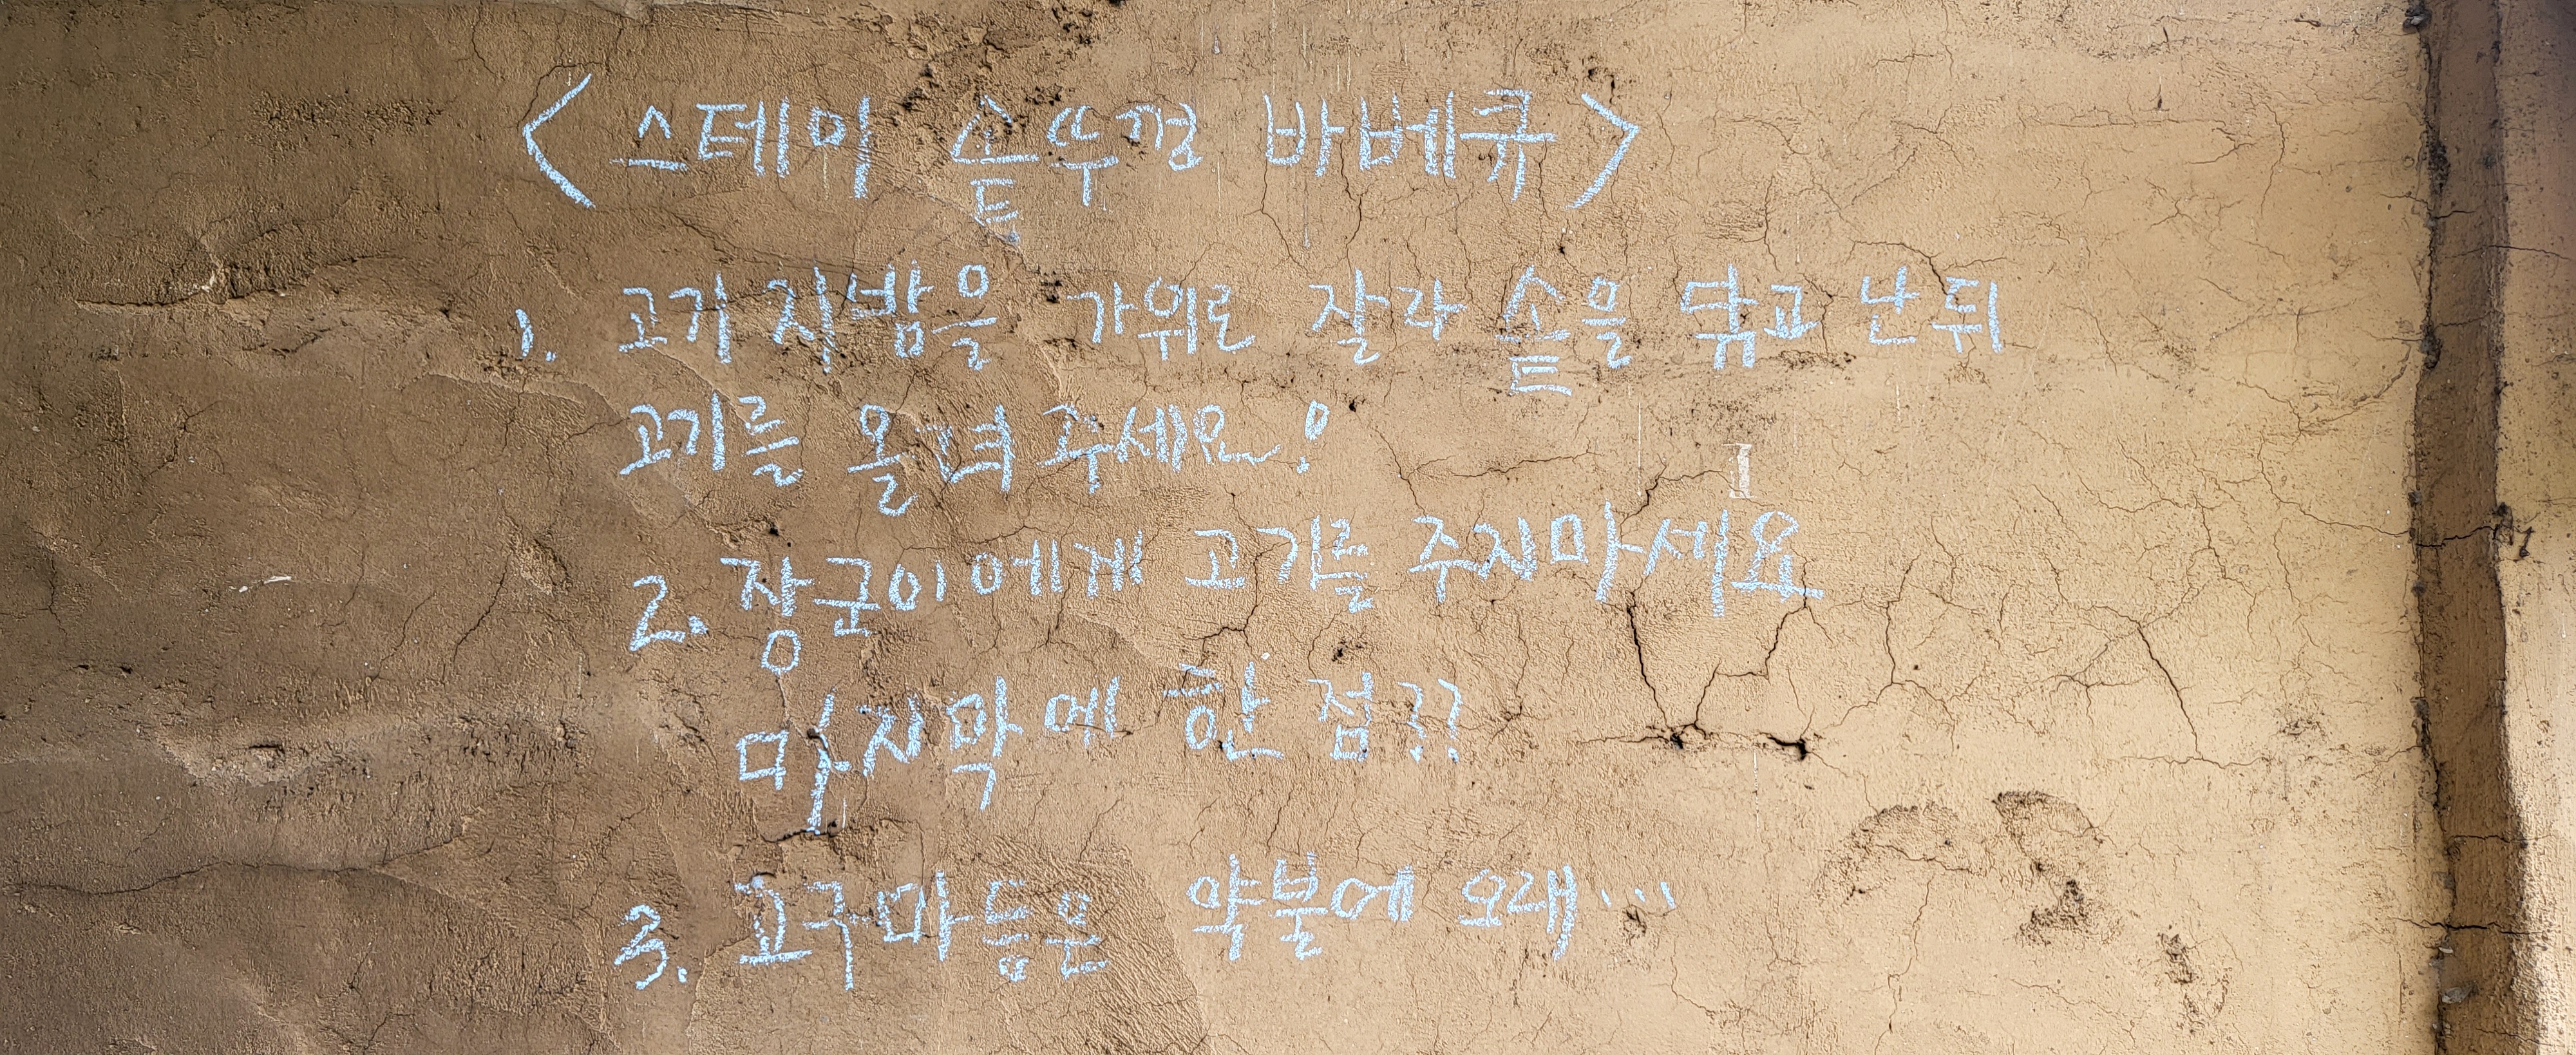 <스테이 솥뚜껑 바베큐>
1. 고기 지방을 가위로 잘라 솥을 닦고 난 뒤
고기를 올려 주세요!
2. 장군이에게 고기를 주지마세요
마지막에 한 점??
3. 고구마 등은 약불에 오래...